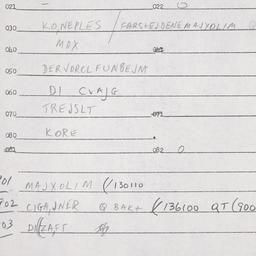 021 — 022 0
030 KO,NEPLES / FARSKEJDENE MAJXOLIM
040 MOX
050 DERVORCLFUNBEJM
060 DI CVAJG
070 TREJSLT 071
080 KORE
081 082 0
901 MAJXOLIM (/130110
902 CIGA,JNER @ BAK+ (/136100 QT (900
903